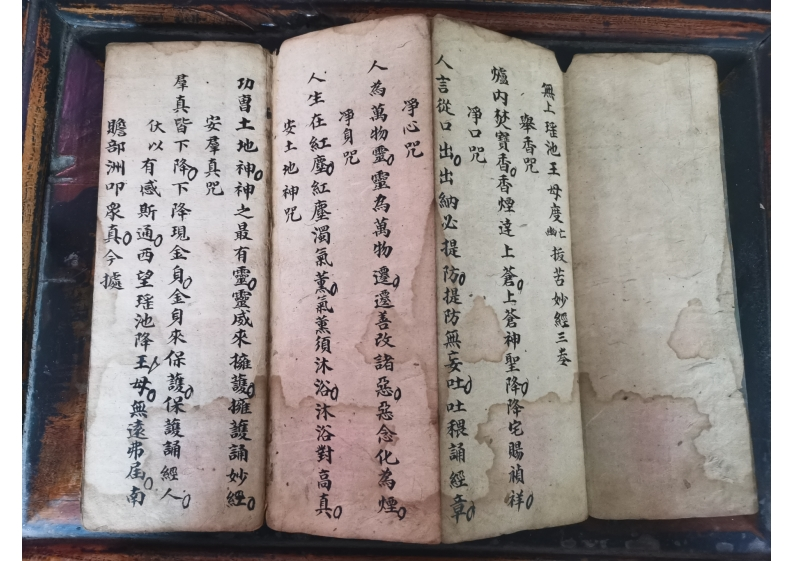 無上瑤池王母度亡幽扳苦妙經三卷
舉香咒
爐内焚寶香香煙達上蒼上蒼神聖降降宅賜禎祥
淨口咒
人言從口出出納必提防提防無妄吐吐穢誦經章
淨心咒
人為萬物靈靈為萬物遷遷善改諸惡惡念化為煙
淨身咒
人生在紅塵紅塵濁氣薰氣薰須沐浴沐浴對高真
安土地神咒
功曹土地神神之最有靈靈威來擁護擁護誦妙經
安羣真咒
羣真皆下降下降現金身金身來保護保護誦經人
伏以有感斯通西望瑤池降王母無遠弗屆南
瞻部洲叩衆真今據